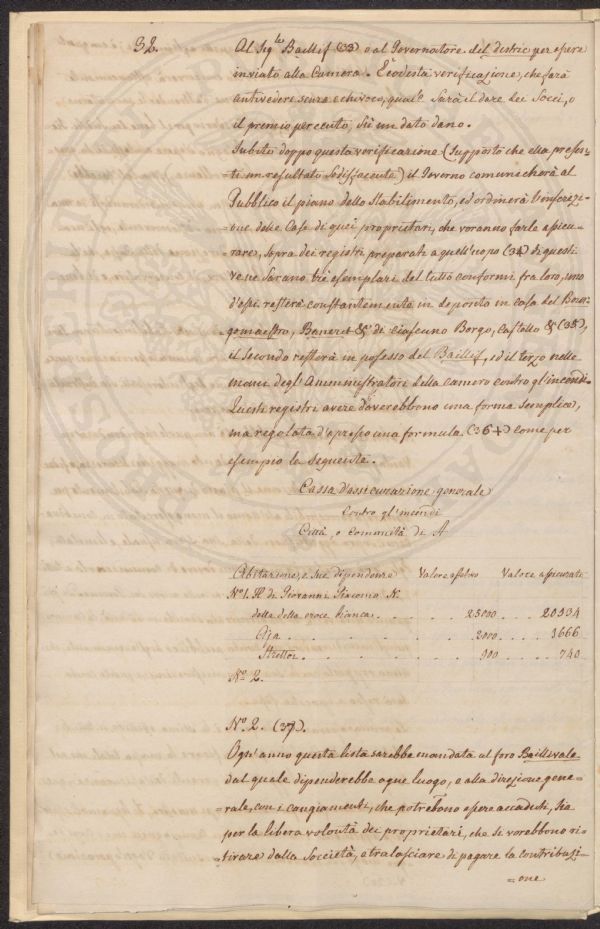 32.
Al Sigle Baillif (33) o al Governatore del distric per essere
inviato alla Camera. Ecodesta verificazione, che farà
antivedere senza echivoco, quale Sarà il dare dei Socci, o
il premio per cento, Sù un dato dano.
Subito doppo questa verificazione (Supposto che ella presen-
ti un resultato Sodisfacente) il Governo comunicherà al
Pubblico il piano dello Stabilimento, ed ordinerà l'inserezi-
=one delle Case di quei proprietari, che voranno farle assicu-
=rare, Sopra dei registri preparati a quell'uopo (34) di questi
ve ne Sarano trè esemplari del tutto conformi fra loro, uno
d'essi resterà constantemente in deposito in casa del Bour
gomaestro, Baneret & di ciascuno Borgo, Castello & (35),
il Secondo resterà in possesso del Baillif, ed il terzo nelle
mani degl'Amministratori della camera contro gl'incendi.
Questi registri avere doverebbono una forma Semplice,
ma regolata d'apresso una formula (36+) come per
esempio la Seguente.
Cassa d'assicurazione generale
Contro gl'incendi
Città, o comunità di A
Abitazione, e Sue dipendenze Valore assolu Valore assicurato
No 1. H di Giovanni Giacomo N.
detto della croce bianca 25000 20934
Aja 2000 1666
Strettoi 900 740
No 2.
No. 2. (37).
Ogn'anno questa lista sarebbe mandata al foro Baillivale
dal quale dipenderebbe ogne luogo, e alla direzione gene=
=rale, con i cangiamenti, che potrebono essere accaduti, Sia
per la libera volontà dei proprietari, che si vorebbono ri-
=tirare dalla Soccietà, e tralasciare di pagare la contribuzi-
=one